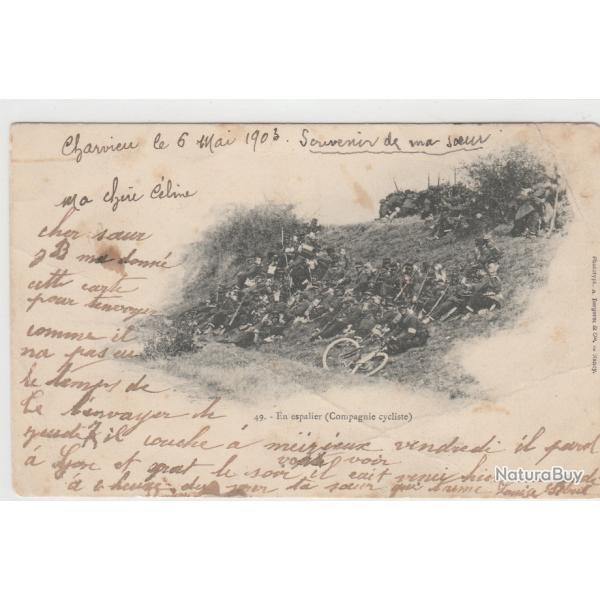 Charvieu le 6 Mai 1903. Souvenir de ma sœur
Ma chère Céline
cher sœur
J B ma donné
cette carte
pour tenvoyer
comme il
na pas eu
le temps de
te l'envoyer de
jeudi il couche à meizieux vendredi il part
à Lyon et le soir il voir
à heure du ta sœur qui t'aime Louise
49. - En espalier (Compagnie cycliste)
Phototypie A. Bergeret & Cie, - Nancy.
NaturaBuy